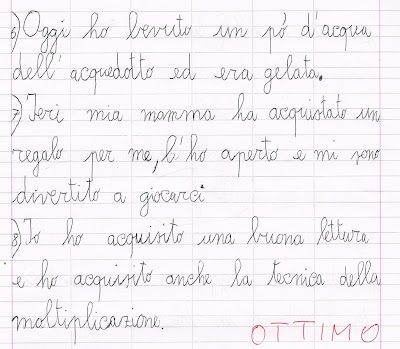 6) Oggi ho bevuto un pó d'acqua
dell'acquedotto ed era gelata.
7) Ieri mia mamma ha acquistato un
regalo per me, l'ho aperto e mi sono
divertito a giocarci
8) Io ho acquisito una buona lettura
e ho acquisito anche la tecnica della
moltiplicazione.
OTTIMO